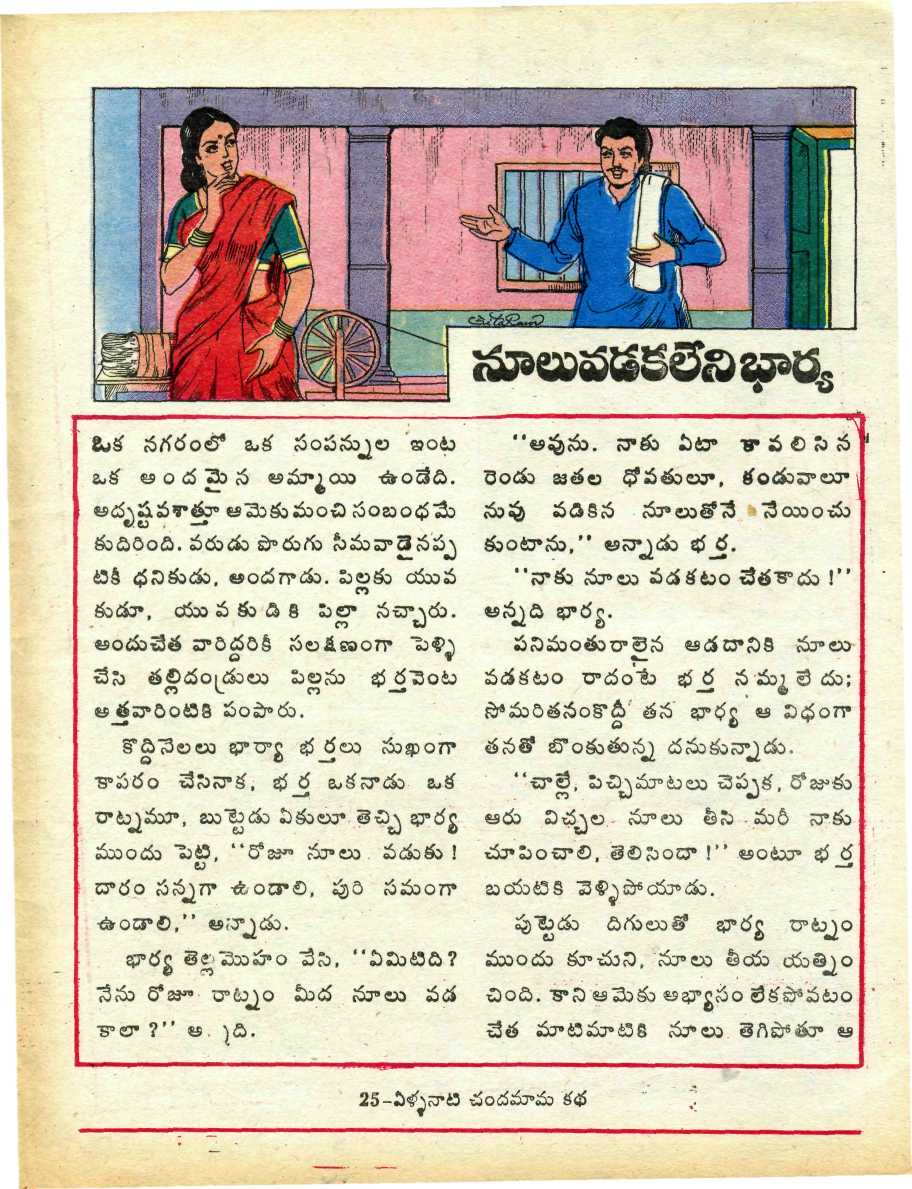 నూలువడకలేని భార్య
ఒక నగరంలో ఒక సంపన్నుల ఇంట
ఒక అందమైన అమ్మాయి ఉండేది.
అదృష్టవశాత్తూ ఆమెకు మంచి సంబంధమే
కుదిరింది. వరుడు పొరుగు సీమవాడైనప్ప
టికీ ధనికుడు, అందగాడు. పిల్లకు యువ
కుడూ, యువకుడికి పిల్లా నచ్చారు.
అందుచేత వారిద్దరికీ సలక్షణంగా పెళ్ళి
చేసి తల్లిదండ్రులు పిల్లను భర్తవెంట
అత్తవారింటికి పంపారు.
కొద్దినెలలు భార్యా భర్తలు సుఖంగా
కాపరం చేసినాక, భర్త ఒకనాడు ఒక
రాట్నమూ, బుట్టెడు ఏకులూ తెచ్చి భార్య
ముందు పెట్టి, ‘‘రోజూ నూలు వడుకు !
దారం సన్నగా ఉండాలి, పురి సమంగా
ఉండాలి,’’ అన్నాడు.
భార్య తెల్లమొహం వేసి, ‘‘ఏమిటిది?
నేను రోజూ రాట్నం మీద నూలు వడ
కాలా ?’’
‘‘అవును. నాకు ఏటా కావలిసిన
రెండు జతల ధోవతులూ, కండువాలూ
నువు వడికిన నూలుతోనే నేయించు
కుంటాను,’’ అన్నాడు భర్త.
‘‘నాకు నూలు వడకటం చేతకాదు !’’
అన్నది భార్య.
పనిమంతురాలైన ఆడదానికి నూలు
వడకటం రాదంటే భర్త నమ్మలేదు;
సోమరితనంకొద్దీ తన భార్య ఆ విధంగా
తనతో బొంకుతున్న దనుకున్నాడు.
‘‘చాల్లే, పిచ్చిమాటలు చెప్పక, రోజుకు
ఆరు విచ్చల నూలు తీసి మరీ నాకు
చూపించాలి, తెలిసిందా !’’ అంటూ భర్త
బయటికి వెళ్ళిపోయాడు.
పుట్టెడు దిగులుతో భార్య రాట్నం
ముందు కూచుని, నూలు తీయ యత్నిం
చింది. కాని ఆమెకు అభ్యాసం లేకపోవటం
చేత మాటిమాటికి నూలు తెగిపోతూ ఆ
25-ఏళ్ళనాటి చందమామ కథ